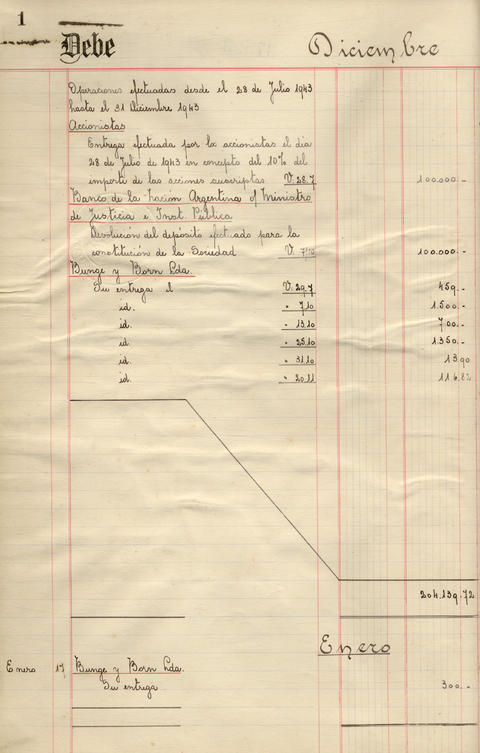 1
Debe Diciembre
Operaciones efectuadas desde el 28 de Julio 1943
hasta el 31 Diciembre 1943
Accionistas
Entrega efectuada por los accionistas el día
28 de Julio de 1943 en concepto del 10% del
importe de las acciones suscriptas V. 28.7 100.000.-
Banco de la Nación Argentina o/ Ministro
de Justicia e Inst. Pública
Devolución del depósito efectuado para la
constitución de la Sociedad V. 7/10 100.000.-
Bunge y Born Lda.
Su entrega el V. 29.7 459.-
id. " 7.10 1.500.-
id. " 13.10 700.-
id. " 25.10 1350.-
id. " 31.10 13.90
id. " 20.11 116.82
204.139.72
Enero
Enero 17 Bunge y Born Lda.
Su entrega 300.-